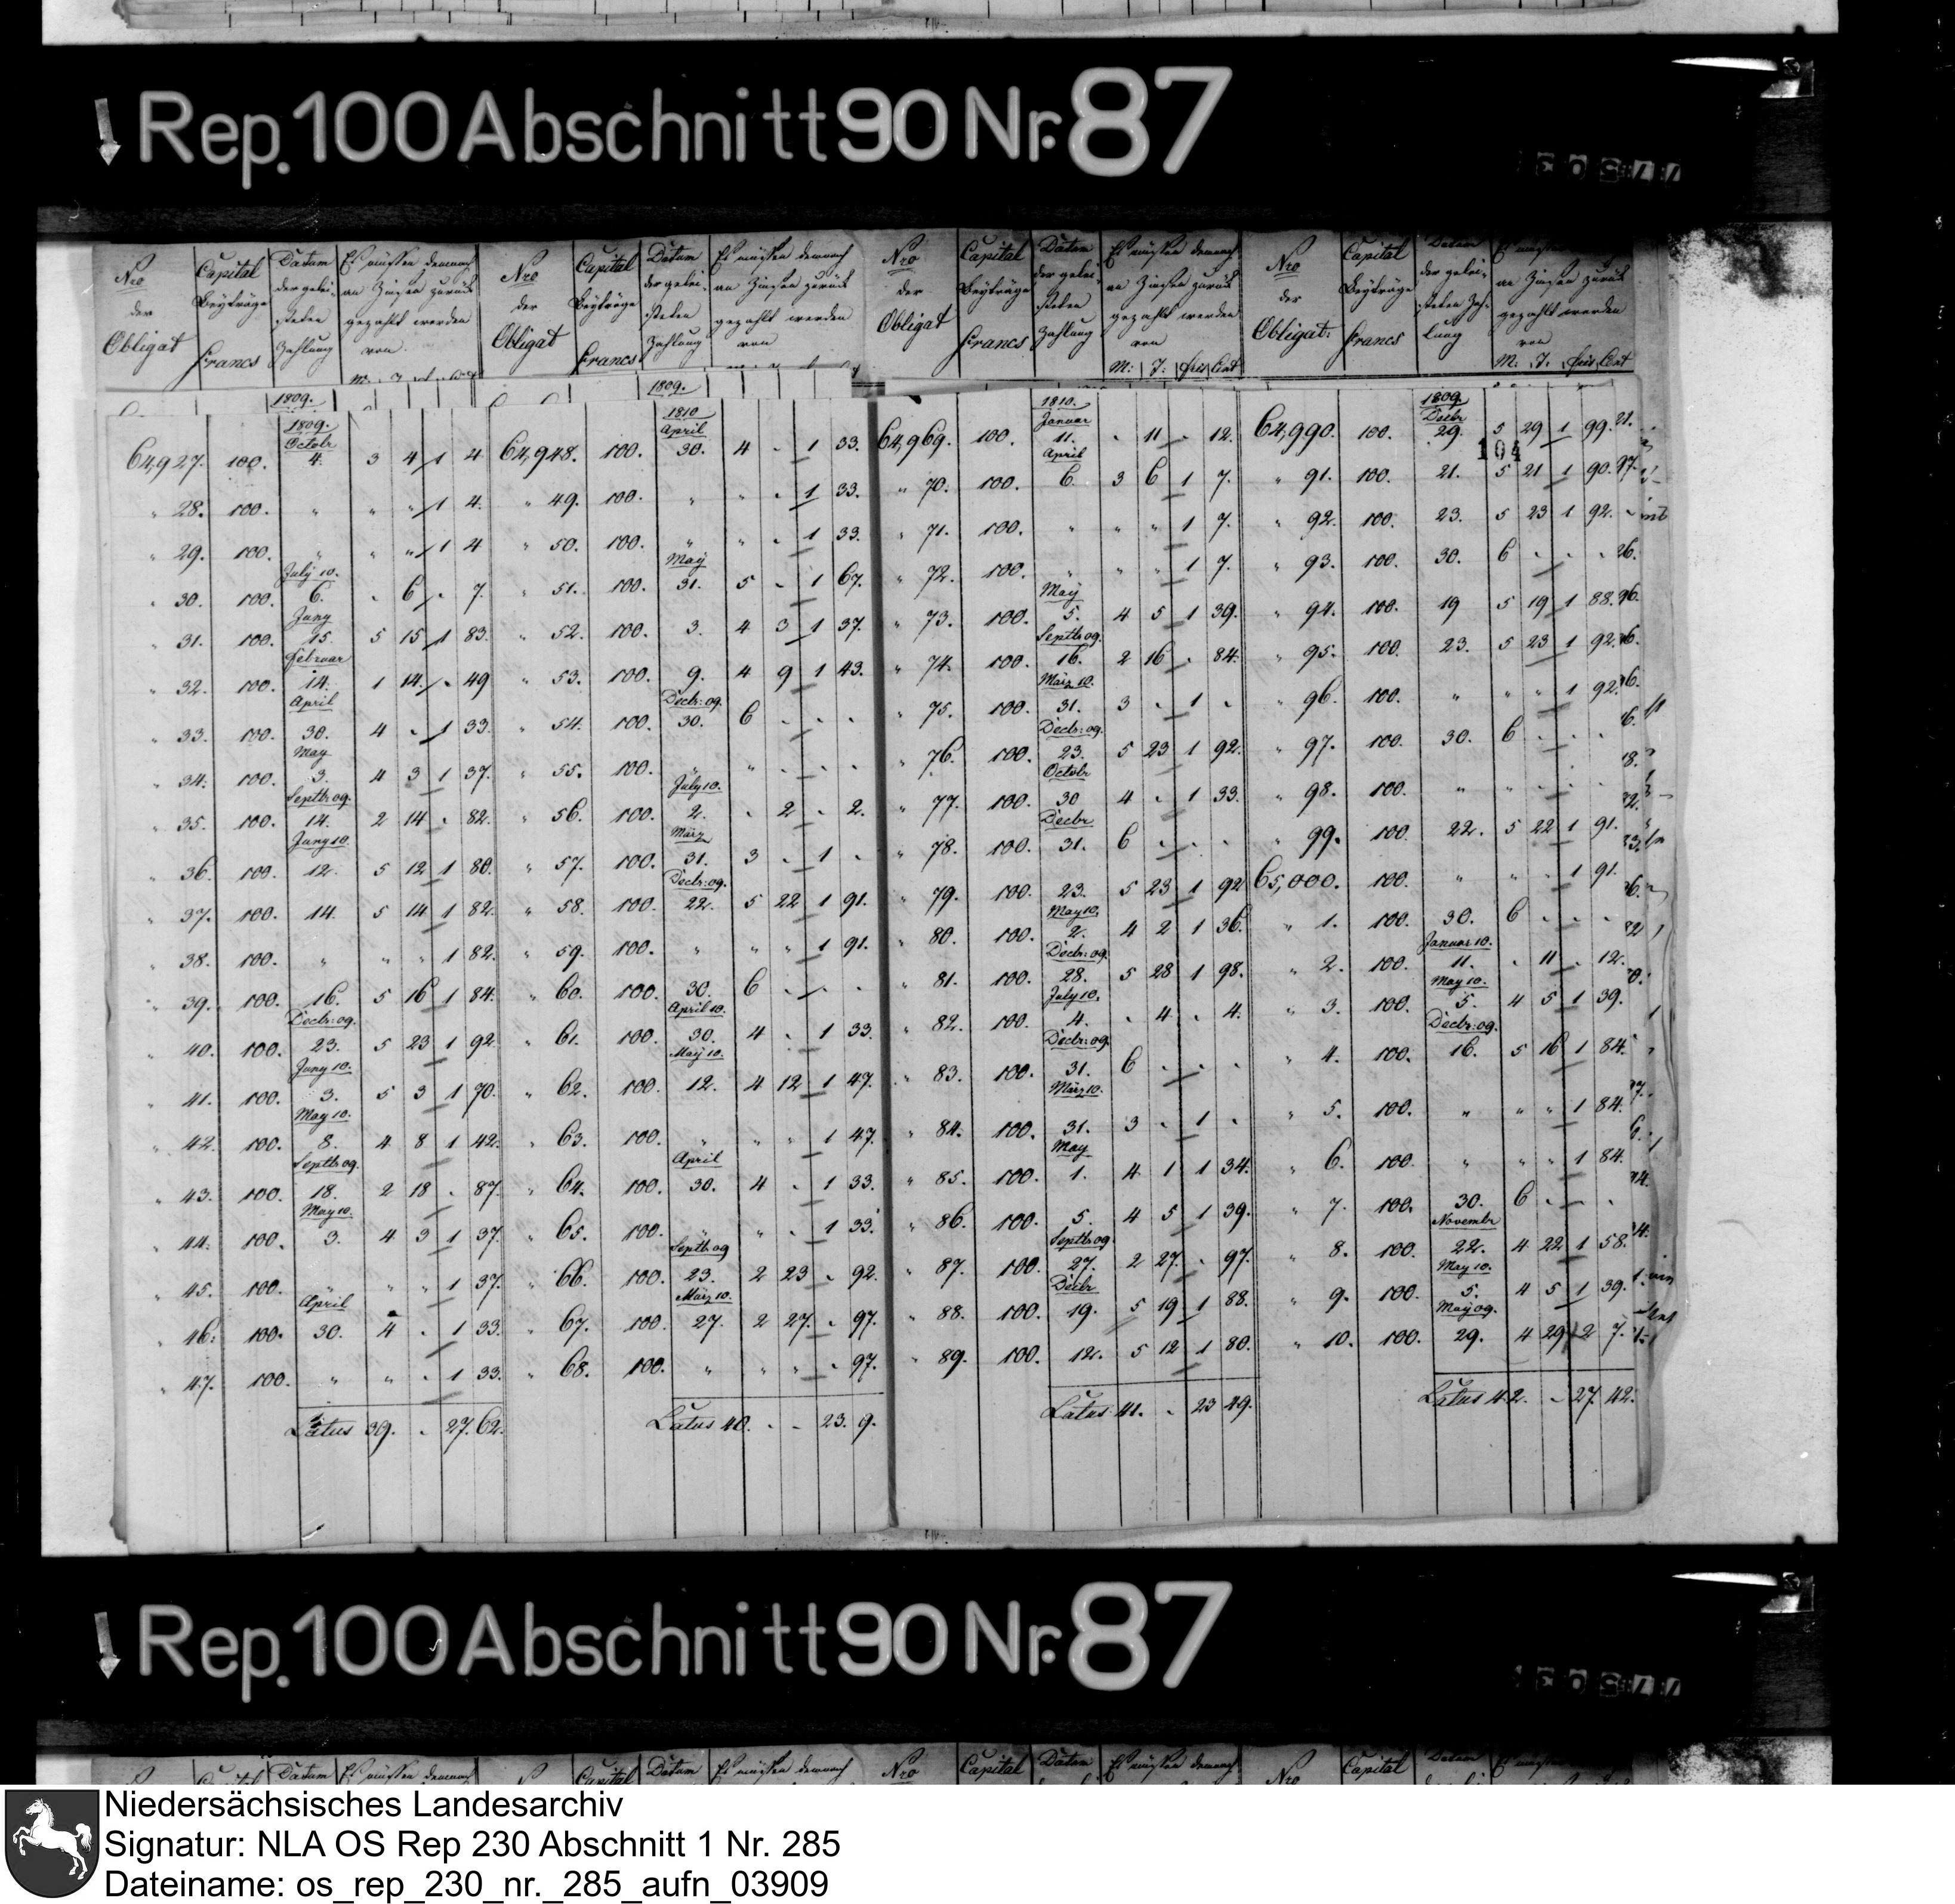 Rep. 100 Abschnitt 90 Nr. 87
Nro der Obligat
Capital Beyträge Francs
Datum der gelei- steten Zahlung
Es müssen demnach an Zinsen zurück gezahlt werden von
Nro der Obligat
Capital Beyträge Francs
Datum der gelei- steten Zahlung
Es müssen demnach an Zinsen zurück gezahlt werden von
Nro der Obligat
Capital Beyträge Francs
Datum der gelei- steten Zahlung
Es müssen demnach an Zinsen zurück gezahlt werden von
M: T: frcs Cent
Nro der Obligat:
Capital Beyträge Francs
Datum der gelei- steten Zah- lung
Es müssen an Zinsen zurück gezahlt werden von
M: T: frcs Cent
1809.
1809. Octobr
64,927. 100. 4. 3 4 1 4
" 28. 100. " " " 1 4.
" 29. 100. " " " 1 4
July 10.
" 30. 100. 6. - 6 - 7.
Juny
" 31. 100. 15. 5 15 1 83.
Februar
" 32. 100. 14. 1 14 - 49
April
" 33. 100. 30. 4 - 1 33.
May
" 34. 100. 3. 4 3 1 37.
Septb: 09.
" 35. 100. 14. 2 14 - 82.
Juny 10.
" 36. 100. 12. 5 12 1 80.
" 37. 100. 14. 5 14 1 82.
" 38. 100. " " " 1 82.
" 39. 100. 16. 5 16 1 84.
Decbr: 09.
" 40. 100. 23. 5 23 1 92.
Juny 10.
" 41. 100. 3. 5 3 1 70.
May 10.
" 42. 100. 8. 4 8 1 42.
Septb: 09.
" 43. 100. 18. 2 18 - 87.
May 10.
" 44. 100. 3. 4 3 1 37.
" 45. 100. " " " 1 37.
April
" 46. 100. 30. 4 - 1 33.
" 47. 100. " " - 1 33.
Latus 39. - 27. 62.
1809.
1810 April
64,948. 100. 30. 4 - 1 33.
" 49. 100. " " - 1 33.
" 50. 100. " " - 1 33.
May
" 51. 100. 31. 5 - 1 67.
" 52. 100. 3. 4 3 1 37.
" 53. 100. 9. 4 9 1 43.
Decbr: 09.
" 54. 100. 30. 6 - - -
" 55. 100. " " - - -
July 10.
" 56. 100. 2. - 2 - 2.
März
" 57. 100. 31. 3 - 1 -
Decbr: 09.
" 58. 100. 22. 5 22 1 91.
" 59. 100. " " " 1 91.
" 60. 100. 30. 6 - - -
April 10.
" 61. 100. 30. 4 - 1 33.
May 10.
" 62. 100. 12. 4 12 1 47.
" 63. 100. " " " 1 47.
April
" 64. 100. 30. 4 - 1 33.
" 65. 100. " " - 1 33.
Septb: 09
" 66. 100. 23. 2 23 - 92.
März 10.
" 67. 100. 27. 2 27. - 97.
" 68. 100. " " " - 97.
Latus 40. - - 23. 9.
1810. Januar
64,969. 100. 11. - 11 - 12.
April
" 70. 100. 6. 3 6 1 7.
" 71. 100. " " " 1 7.
" 72. 100. " " " 1 7.
May
" 73. 100. 5. 4 5 1 39.
Septb: 09.
" 74. 100. 16. 2 16 - 84.
März 10.
" 75. 100. 31. 3 - 1 -
Decbr: 09.
" 76. 100. 23. 5 23 1 92.
Octobr
" 77. 100. 30 4 - 1 33.
Decbr
" 78. 100. 31. 6 - - -
" 79. 100. 23. 5 23 1 92
May 10.
" 80. 100. 2. 4 2 1 36.
Decbr: 09.
" 81. 100. 28. 5 28 1 98.
July 10.
" 82. 100. 4. - 4 - 4.
Decbr: 09.
" 83. 100. 31. 6 - - -
März 10.
" 84. 100. 31. 3 - 1 -
May
" 85. 100. 1. 4 1 1 34.
" 86. 100. 5. 4 5 1 39.
Septb: 09
" 87. 100. 27. 2 27. - 97.
Decbr
" 88. 100. 19. 5 19 1 88.
" 89. 100. 12. 5 12 1 80.
Latus 41. - 23 49.
1809. Decbr
64,990. 100. 29. 5 29 1 99.
104
" 91. 100. 21. 5 21 1 90.
" 92. 100. 23. 5 23 1 92.
" 93. 100. 30. 6 - - -
" 94. 100. 19 5 19 1 88.
" 95. 100. 23. 5 23 1 92.
" 96. 100. " " " 1 92.
" 97. 100. 30. 6 - - -
" 98. 100. " " - - -
" 99. 100. 22. 5 22 1 91.
65,000. 100. " " - 1 91.
" 1. 100. 30. 6 - - -
Januar 10.
" 2. 100. 11. - 11 - 12.
May 10.
" 3. 100. 5. 4 5 1 39.
Decbr: 09.
" 4. 100. 16. 5 16 1 84.
" 5. 100. " " " 1 84.
" 6. 100. " " " 1 84.
" 7. 100. 30. 6 - - -
Novembr
" 8. 100. 22. 4 22 1 58.
May 10.
" 9. 100. 5. 4 5 1 39.
May 09.
" 10. 100. 29. 4 29 2 7.
Latus 42. - 27. 42.
Rep. 100 Abschnitt 90 Nr. 87
Datum Es müssen demnach Capital Datum Es müssen demnach Nro Capital Datum Es müssen demnach Nro Capital
Niedersächsisches Landesarchiv
Signatur: NLA OS Rep 230 Abschnitt 1 Nr. 285
Dateiname: os_rep_230_nr._285_aufn_03909